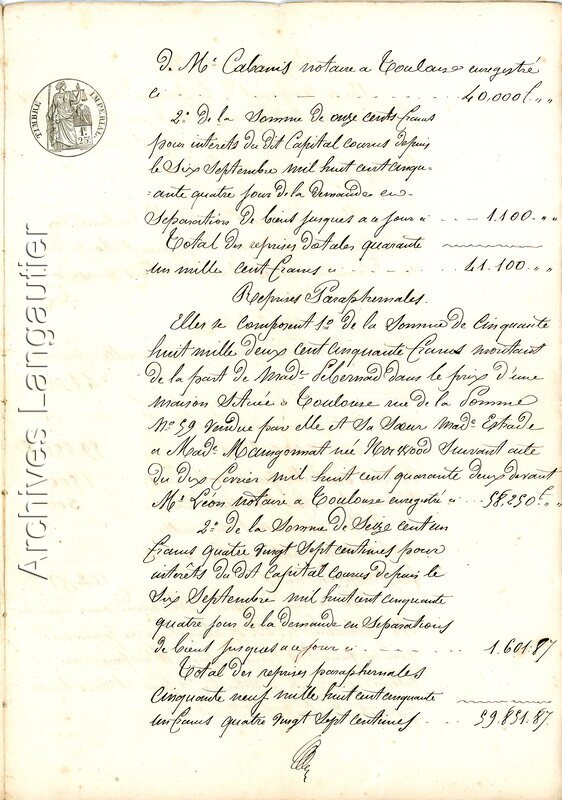 de Me Cabanis notaire a Toulouse enregistré
ci 40.000f " "
2º de la Somme de onze cents francs
pour interets du dit Capital courus depuis
le Six Septembre mil huit cent cinqu-
-ante quatre jour de la demande en
Separation de biens jusques a ce jour ci 1.100 " "
Total des reprises dotales quarante
un mille cent francs ci 41.100 " "
Reprises Paraphernales.
Elles se composent 1º de la Somme de Cinquante
huit mille deux cent cinquante francs montant
de la part de Made Pébernad dans le prix d'une
maison Située a Toulouse rue de la Pomme
Nº 59 Vendue par elle et Sa Sœur Made Estrade
a Made née suivant acte
du dix mil huit cent quarante deux devant
Me Léon notaire a Toulouse enregistré ci 58.250f "
2º de la Somme de Seize cent un
francs quatre vingt Sept centimes pour
interêts du dit Capital courus depuis le
Six Septembre mil huit cent cinquante
quatre jour de la demande en Separations
de biens jusques a ce jour ci 1.601.87
Total des reprises paraphernales
Cinquante neuf mille huit cent cinquante
un francs quatre vingt Sept centimes 59.851.87
TIMBRE IMPERIAL
1F.
25c.
Archives Langautier